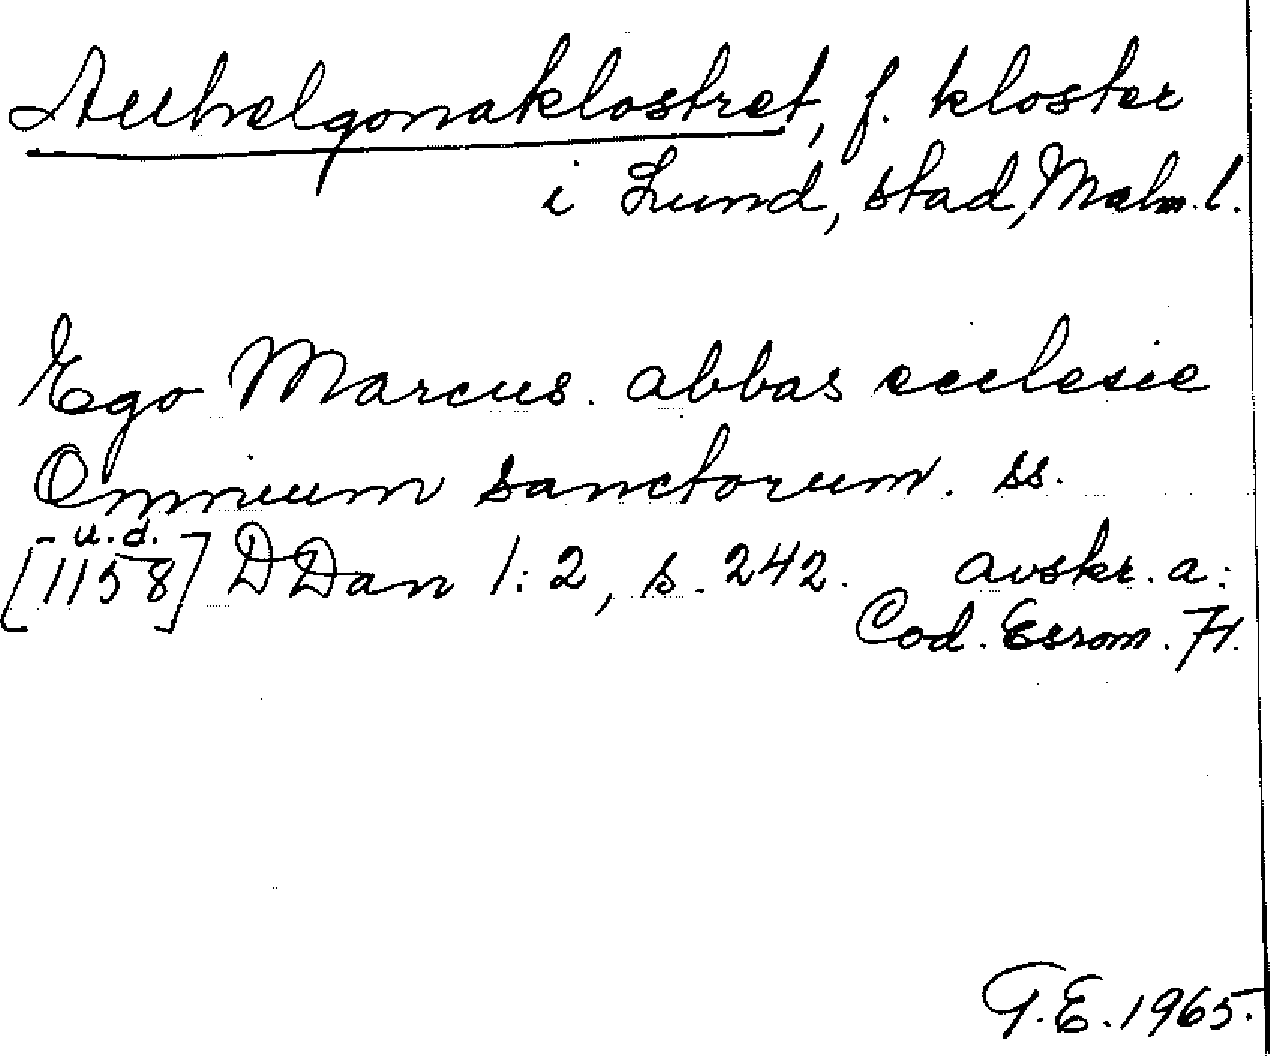 Allhelgonaklostret, f. kloster
i Lund, stad, Malm. l.
Ego Marcus. abbas ecclesie
Omnium sanctorum. ss.
u. d.
[1158] DDan 1:2, s. 242. avskr. a:
Cod. Esrom. Fl.
G.E. 1965.